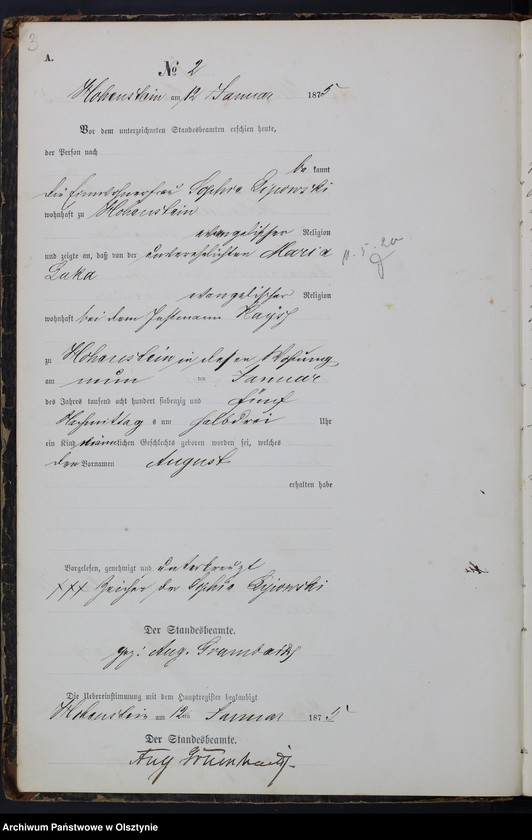 3
A.
No 2
Hohenstein am 12 Januar 1875
Vor dem unterzeichneten Standesbeamten erschien heute,
der Person nach
be kannt
die Einwohnerfrau Sophia Lipowski
wohnhaft zu Hohenstein
evangelischer Religion
und zeigte an, daß von der unverehelichten Maria
Luka
evangelischer Religion
wohnhaft bei dem Instmann
zu Hohenstein in dessen Wohnung
am neun ten Januar
des Jahres tausend acht hundert siebenzig und fünf
Nachmittag s um halbdrei Uhr
ein Kind männlichen Geschlechts geboren worden sei, welches
den Vornamen August
erhalten habe
Vorgelesen, genehmigt und unterkreuzt
+++ Zeichen der Sophia Lipowski
Der Standesbeamte.
gez: Aug.
Die Uebereinstimmung mit dem Hauptregister beglaubigt
Hohenstein am 12ten Januar 1875
Der Standesbeamte.
Aug
Archiwum Państwowe w Olsztynie